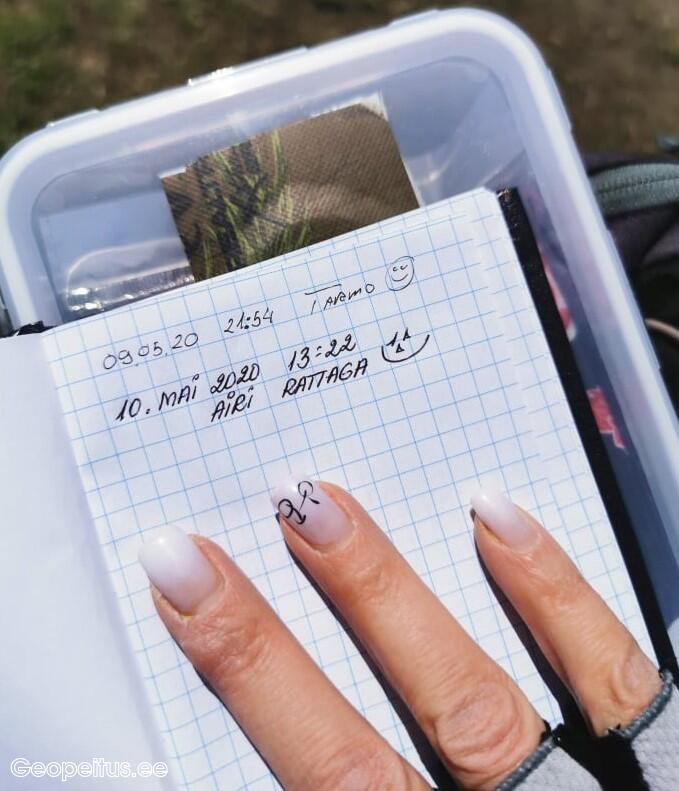 09.05.20 21:54 TARMO
10. MAI 2020 13:22
AIRI RATTAGA
Geopeitus.ee